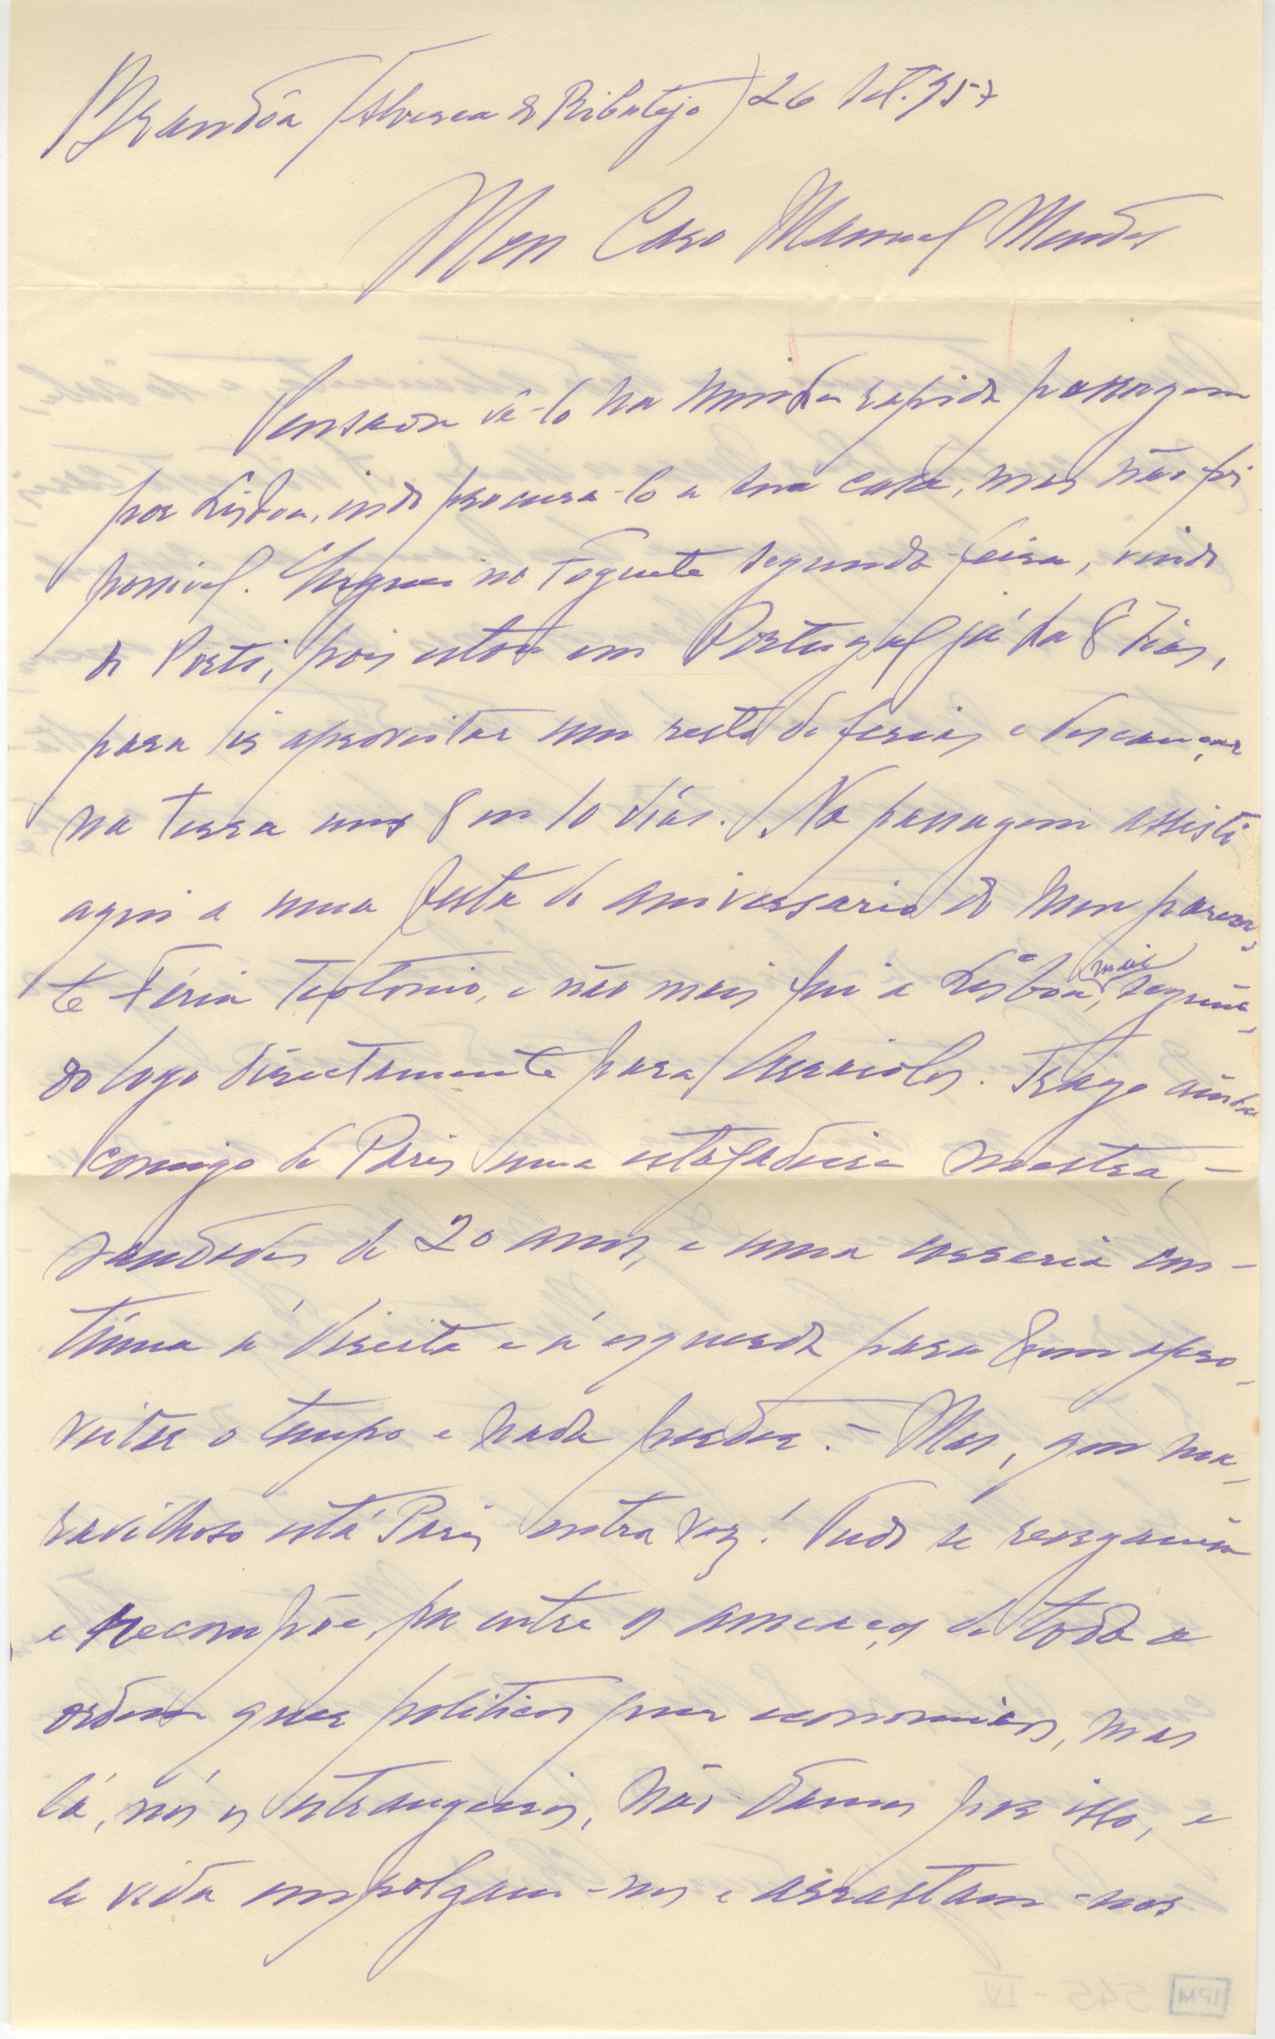 Brandôa (Alverca do Ribatejo) 26 Set. 957
Meu Caro Manuel Mendes
Pensava vê-lo na minha rapida passagem
por Lisboa, indo procura-lo a sua casa, mas não foi
possivel. Cheguei no Foguete segunda-feira, vindo
do Porto, pois estou em Portugal já ha 8 dias,
para ir aproveitar um resto de ferias e descançar
na terra uns 8 ou 10 dias. Na passagem assisti
aqui a uma festa de aniversario do meu paren-
te Féria Teotonio, e não mais fui a Lisboa, mais seguin-
do logo directamente para Arraiolos. Trago ainda
comigo de Paris uma estafadeira mestra, -
saudades de 20 anos, e uma correria con-
tinua á direita e á esquerda para bem apro-
veitar o tempo e nada perder. - Mas, que ma-
ravilhoso está Paris outra vez! Tudo se reorganisa
e recompõe por entre as ameaças de toda a
ordem quer politicas quer economicas, mas
lá, nós os estrangeiros, não damos por isso, e
a vida empolgam-nos e arrastam-nos
IPM 545-IV